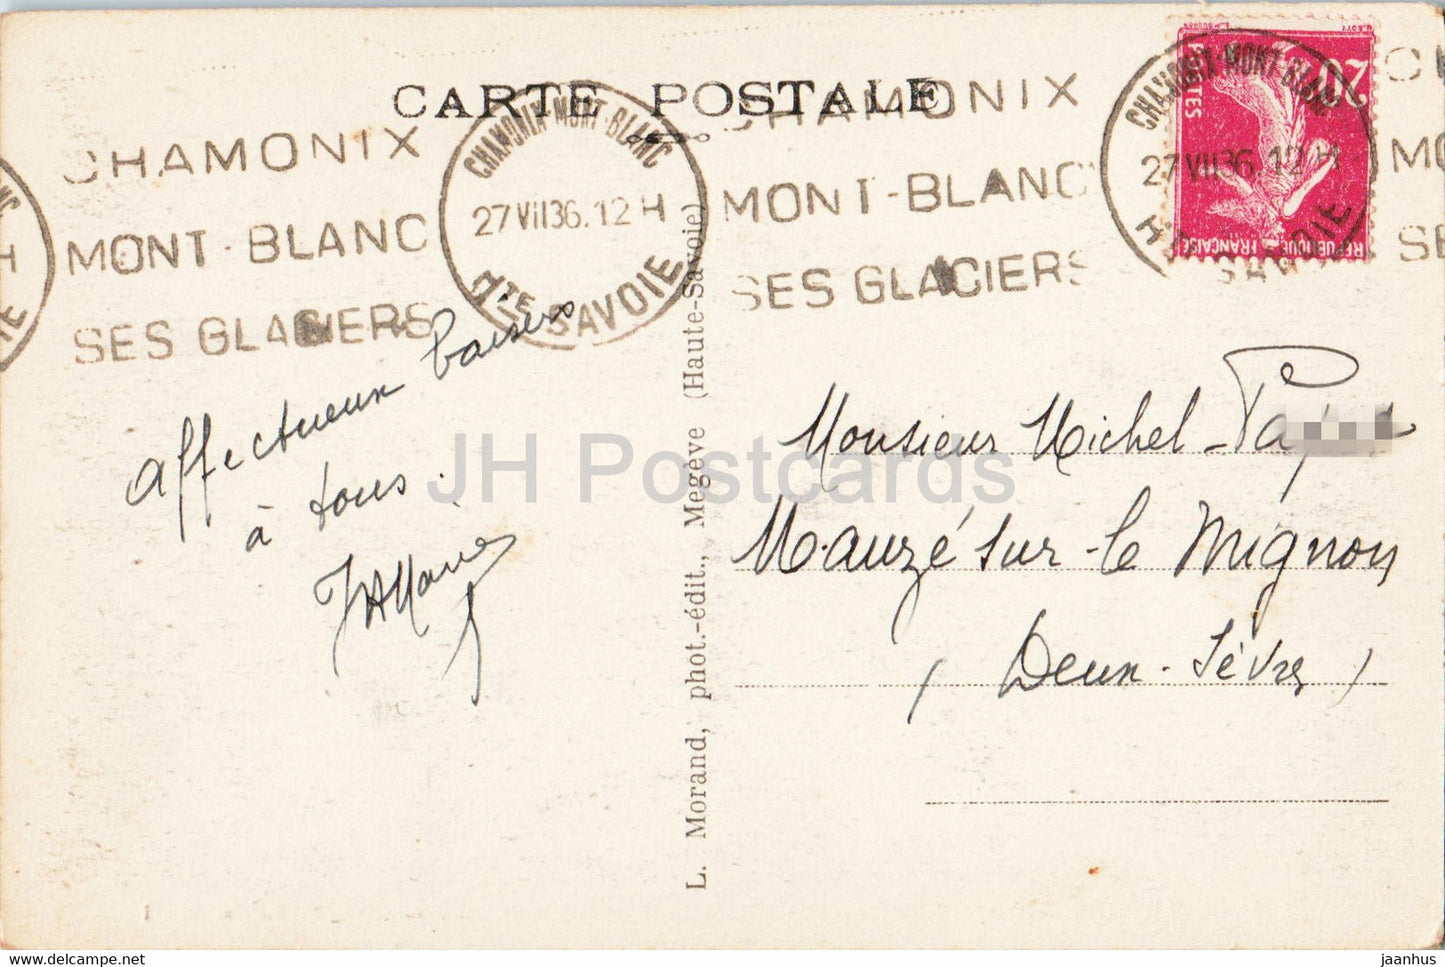 CARTE POSTALE
CHAMONIX
MONT-BLANC
SES GLACIERS
CHAMONIX-MONT-BLANC
27 VII 36. 12 H
Hte SAVOIE
CHAMONIX
MONT-BLANC
SES GLACIERS
CHAMONIX-MONT-BLANC
27 VII 36. 12 H
Hte SAVOIE
20
POSTES
REPUBLIQUE FRANÇAISE
Affectueux baisers
à tous.
L. Morand, phot.-édit., Megève (Haute-Savoie)
Monsieur Michel
Mauzé sur-le Mignon
( Deux-Sèvres )
JH Postcards
www.delcampe.net
jaanhus